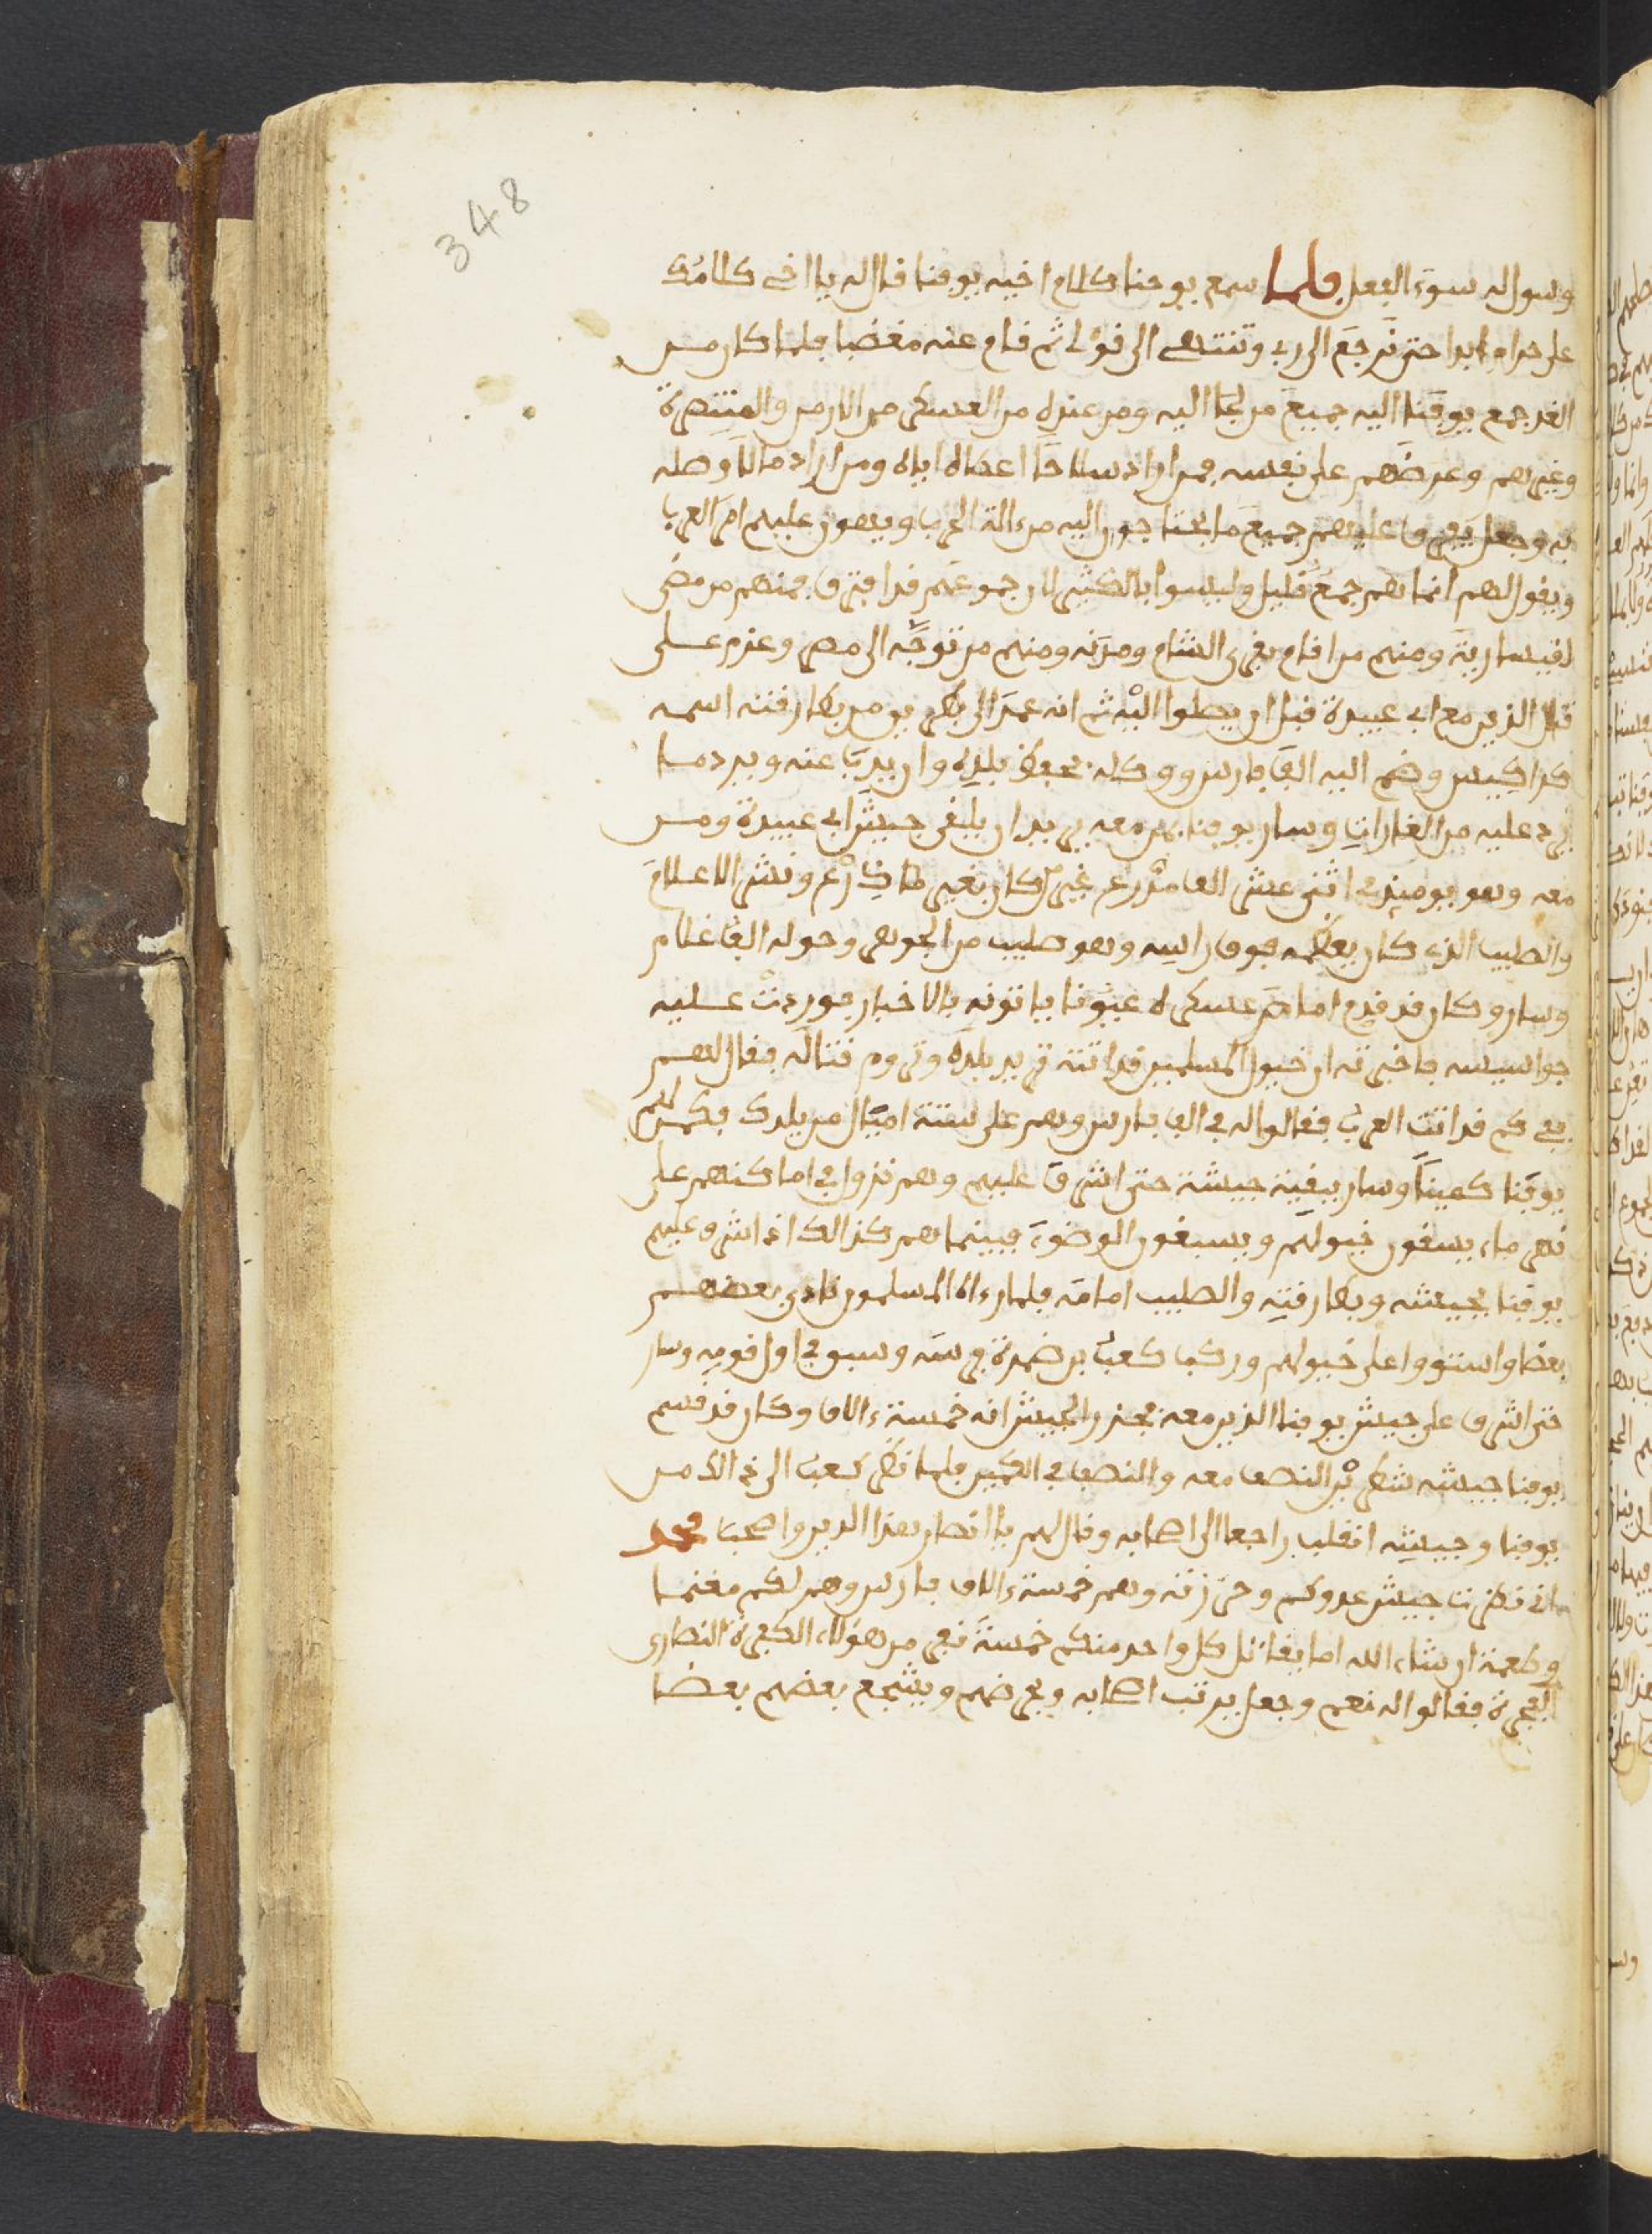 348
وسول له سوء الفعل فلما سمع يوحنا كلام اخيه يوقنا قال له يا اخي كلامك
على حرام ابدا حتى ترجع الى ربي وتنتهي الى قولي ثم قام عنه مغضبا فلما كان من
الغد جمع يوقنا اليه جميع من لجا اليه ومن عنده من العسكر من الارمن والمتنصرة
وغيرهم وعرضهم على نفسه فمن اراد سلاحا اعطاه اياه ومن اراد مالا وصله
به وجعل يفرق عليهم جميع ما يحتاجون اليه من ءالة الحرب ويهون عليهم امر العرب
ويقول لهم انما هم جمع قليل وليسوا بالكثير لان جموعهم قد افترق فمنهم من مضى
لقيسارية ومنهم من اقام بقرى الشام ومدنه ومنهم من توجه الى مصر وعزم على
قتال الذين مع ابي عبيدة قبل ان يصلوا اليه ثم انه عمد الى بطريق من بطارقته اسمه
كراكيس وضم اليه الف فارس ووكله بحفظ بلده وان يذب عنه ويرد من
يرد عليه من الغارات وسار يوقنا بمن معه يريد ان يلقى جيش ابي عبيدة ومن
معه وهو يومئذ في اثني عشر الف مدرع غير من كان بغير درع ونشر الاعلام
والصليب الذي كان يعظمه فوق راسه وهو صليب من الجوهر وحوله الف غلام
وسار وكان قد قدم امام عسكره عيونا ياتونه بالاخبار فوردت عليه
جواسيسه فاخبرته ان خيول المسلمين قد اتت تريد بلده وتروم قتاله فقال لهم
في كم قد اتت العرب فقالوا له في الف فارس وهم على ستة اميال من بلدك فكمن لهم
يوقنا كمينا وسار ببقية جيشه حتى اشرف عليهم وهم نزول في اماكنهم على
نهر ماء يسقون خيولهم ويسبغون الوضوء فبينما هم كذالك اذ اشرف عليهم
يوقنا بجيشه وبطارقته والصليب امامه فلما رءاه المسلمون نادى بعضهم
بعضا واستووا على خيولهم وركب كعب بن ضمرة فرسه وسبق في اول قومه وسار
حتى اشرف على جيش يوقنا الذين معه فحزر الجيش انه خمسة ءالاف وكان قد قسم
يوقنا جيشه شطرين النصف معه والنصف في الكمين فلما نظر كعب الى ذالك من
يوقنا وجيشه انقلب راجعا الى اصحابه وقال لهم يا انصار هذا الدين واصحاب محمد
انى نظرت جيش عدوكم وحزرته وهم خمسة ءالاف فارس وهم لكم مغنما
وطعمة ان شاء الله اما يقاتل كل واحد منكم خمسة نفر من هؤلاء الكفرة النصارى
الفجرة فقالوا له نعم وجعل يرتب اصحابه ويحرضهم ويشجع بعضهم بعضا